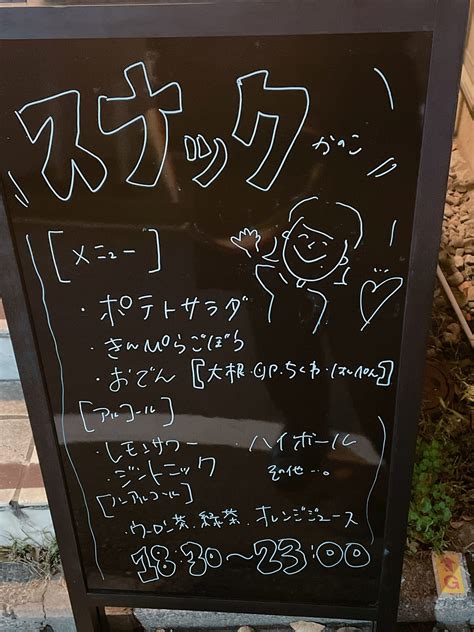 スナック かのこ
[メニュー]
・ポテトサラダ
・きんぴらごぼう
・おでん [大根・卵・ちくわ・はんぺん]
[アルコール]
・レモンサワー ・ハイボール
・ジントニック その他…。
[ノンアルコール]
・ウーロン茶・緑茶・オレンジジュース
18:30～23:00
G